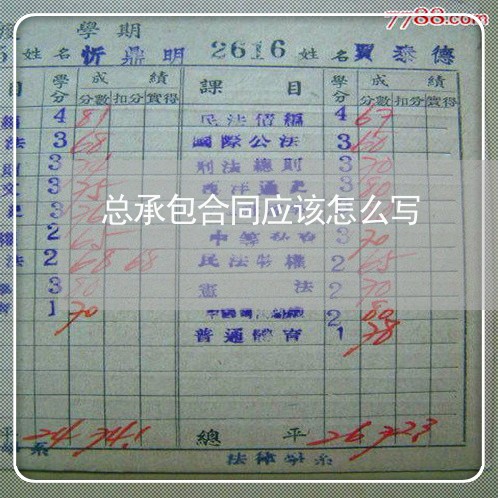 7788.com
學期
姓名 忻鼎明 2616 姓名 賈泰德
目 學分 成績 課目 學分 成績
分數 扣分 實得 分數 扣分 實得
4 81 民法債編 4 67
法 3 68 國際公法 3 60
3 刑法總則 3 70
3 75 西洋通史 3 80
總承包合同应该怎么写
2 65 中等 3 70
法 2 68 68 民法物權 2 65
3 80 憲法 2 70
1 70 2 80
普通體育 1 78
平 24 74.1 總平 26 72.3
系 法律學系